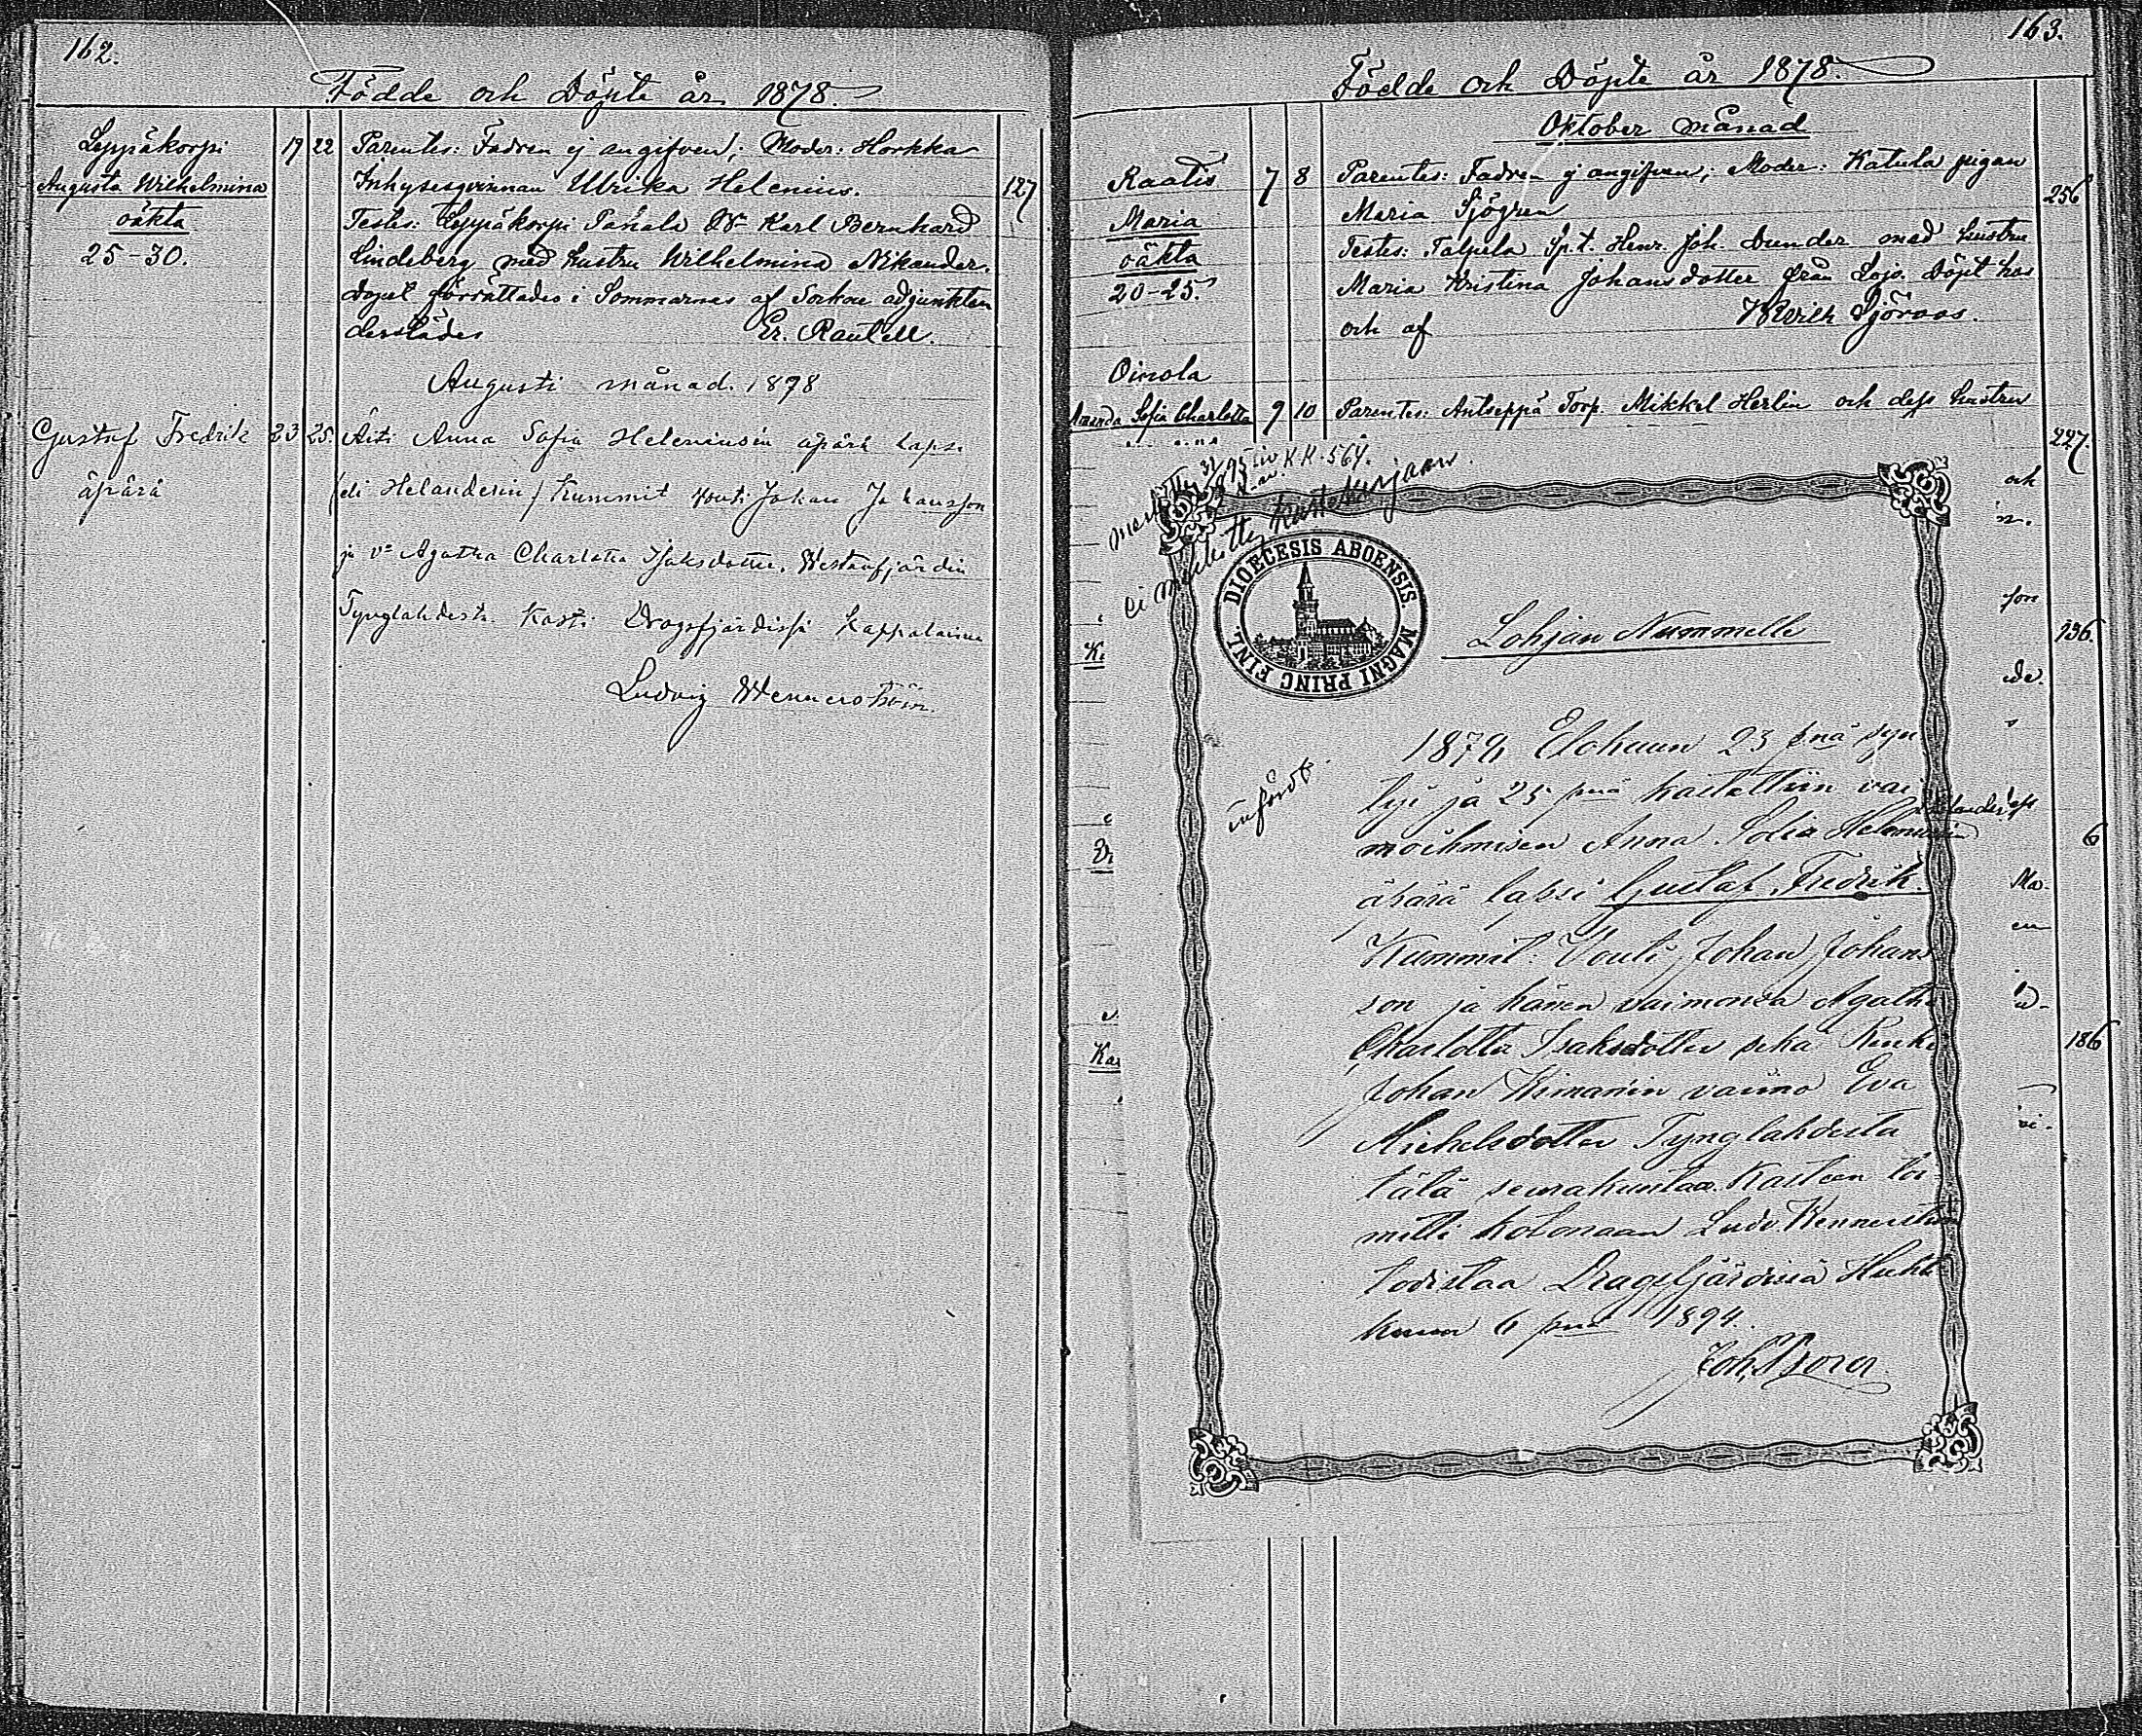 162.
Födde och Döpte år 1878.
Leppäkorpi 19 22 Parentes: Fadren ej angifven; Moder: Horkka
Augusta Wilhelmina Inhysesqvinnan Ulrika Helenius. 127
oäkta Testes: Leppäkorpi Pahala Karl Bernhard
25-30. Lindeberg med hustru Wilhelmina Nikander.
Dopet förrättades i Sommarnäs af Sockne adjunkten
derstädes Er. Rautell.
Augusti månad. 1878
Gustaf Fredrik 23 25. Äiti Anna Sofia Heleniusin äpärä lapsi
äpärä (eli Helanderin) Kummit vouti Johan Johansson
ja vo Agatha Charlotta Isaksdotter, Westanfjärdin
Tynglahdesta. Kasti Dragsfjärdissä kappalainen
Ludvig Wennerström.
163.
Födde och Döpte år 1878.
Oktober månad
Raatis 7 8 Parentes: Fadren ej angifven; Moder: Katula pigan
Maria Maria Sjögren 256
oäkta Testes: Talpela Sp.t. Henr. Joh. Dunder med hustru
20-25. Maria Kristina Johansdotter från Lojo. Döpt hos
och af Sjöroos.
Oinola
Amanda Sofia Charlotta 9 10 Parentes: Antseppä Torp. Mikkel Herlin och dess hustru
227.
K.K. 564.
ei merkitty kastekirjaan.
och
n.
son
136.
de.
s
6
Ma-
en
186
vi-
Kas
DIOECESIS ABOENSIS. MAGNI PRINC FINL.
Lohjan Nummelle
infördt.
1878 Elokuun 23 pnä syn
tyi ja 25 pnä kastettiin vai
Helanderin
moihmisen Anna Sofia Heleniusin
äpärä lapsi Gustaf Fredrik.
Kummit: Vouti Johan Johans
son ja hänen vaimonsa Agatha
Charlotta Isaksdotter sekä Renki
Johan Wimanin vaimo Eva
Michelsdotter Tynglahdesta
tätä seurakuntaa. Kasteen toi
mitti kotonaan Ludv. Wennerström
todistaa Dragsfjärdissä Huhti
kuun 6 pnä 1894.